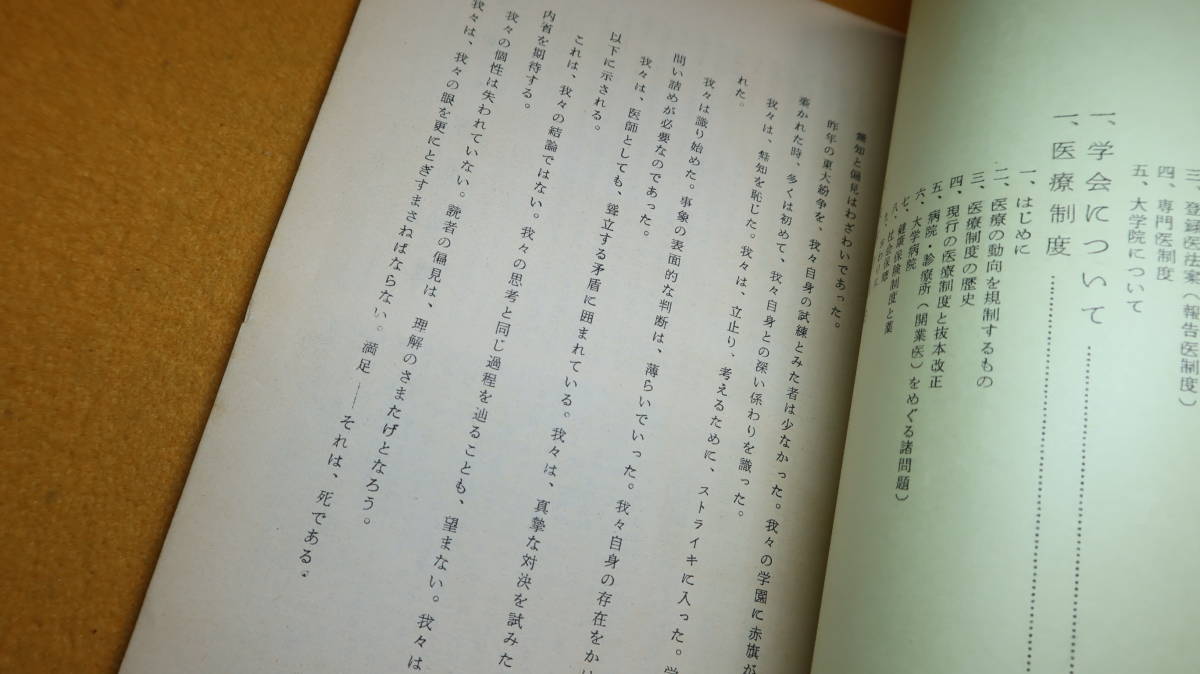 三、登録医法案（報告医制度）
四、専門医制度
五、大学院について
一、学会について
一、医療制度
一、はじめに
二、医療の動向を規制するもの
三、医療制度の歴史
四、現行の医療制度と抜本改正
五、病院・診療所（開業医）をめぐる諸問題）
六、大学病院
七、健康保険制度と薬
八、社会保障
無知と偏見はわざわいであった。
昨年の東大紛争を、我々自身の試練とみた者は少なかった。我々の学園に赤旗が
築かれた時、多くは初めて、我々自身との深い係わりを識った。
我々は、無知を恥じた。我々は、立止り、考えるために、ストライキに入った。学
れた。
我々は識り始めた。事象の表面的な判断は、薄らいでいった。我々自身の存在をかけ
問い詰めが必要なのであった。
我々は、医師としても、聳立する矛盾に囲まれている。我々は、真摯な対決を試みた
以下に示される。
これは、我々の結論ではない。我々の思考と同じ過程を辿ることも、望まない。我々は
内省を期待する。
我々の個性は失われていない。読者の偏見は、理解のさまたげとなろう。
我々は、我々の眼を更にとぎすまさねばならない。満足――それは、死である。